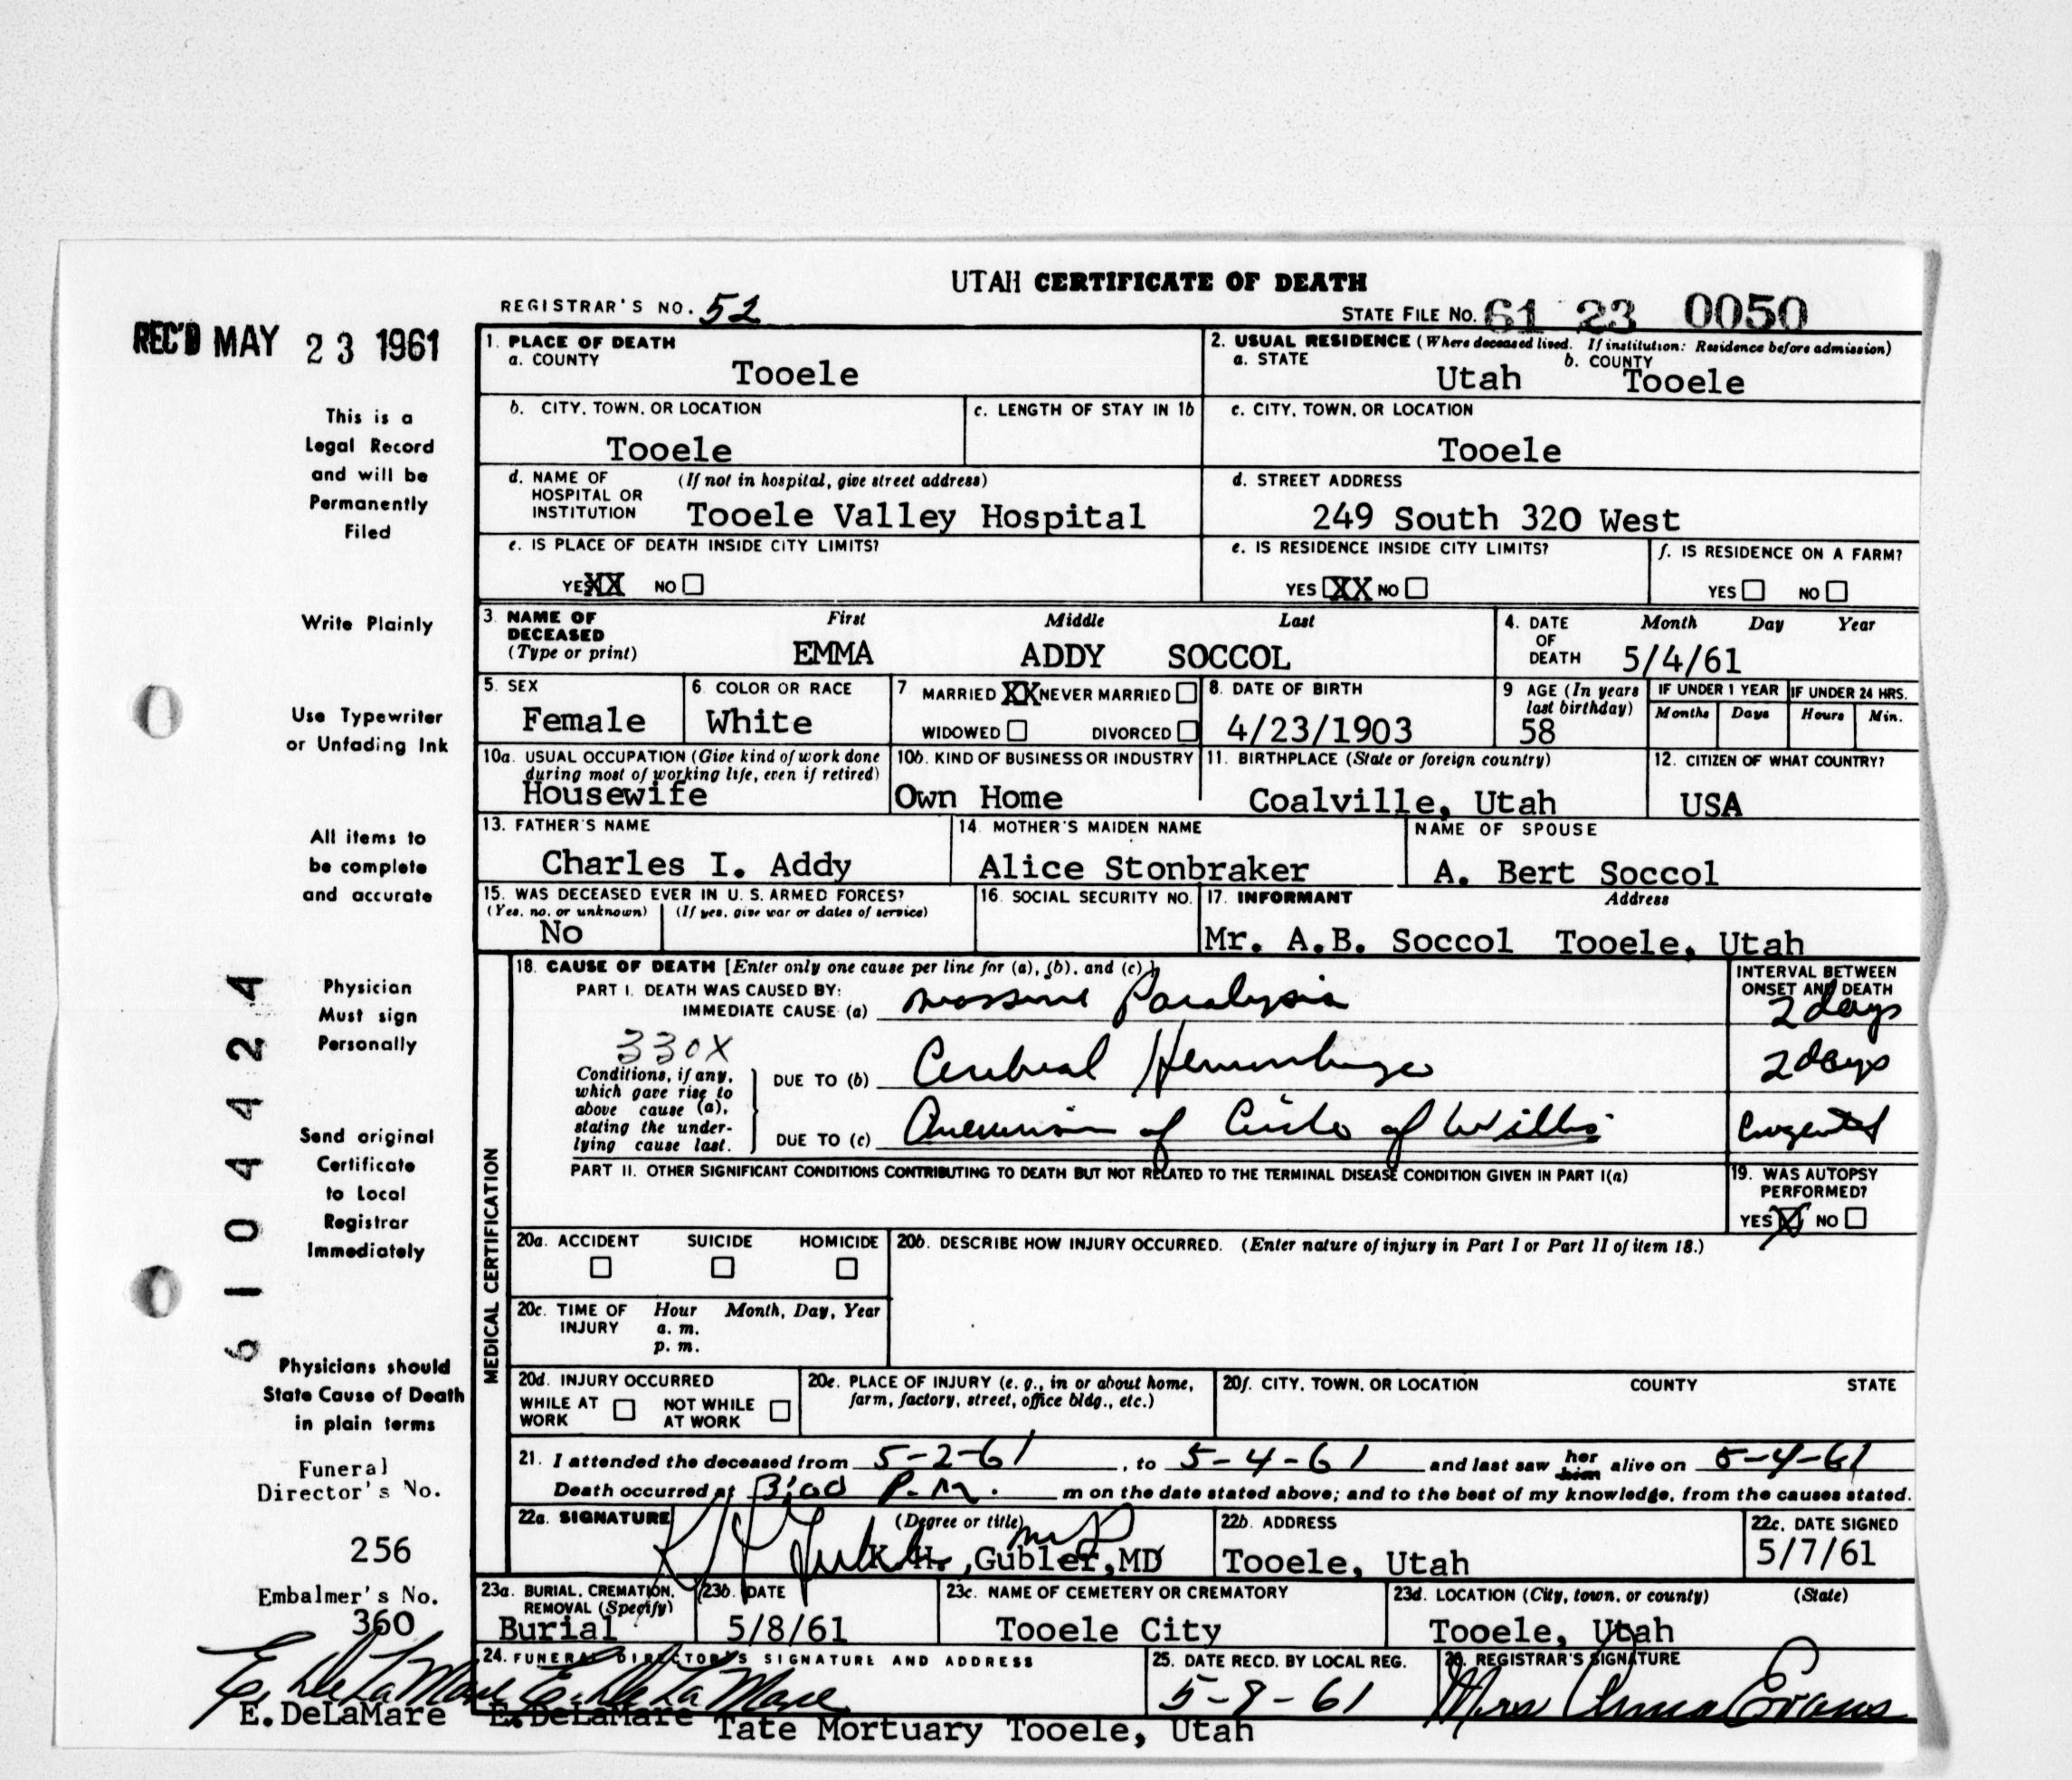 UTAH CERTIFICATE OF DEATH
REGISTRAR'S NO. 52
STATE FILE No. 61 23 0050
REC'D MAY 23 1961
This is a
Legal Record
and will be
Permanently
Filed
Write Plainly
Use Typewriter
or Unfading Ink
All items to
be complete
and accurate
Physician
Must sign
Personally
Send original
Certificate
to Local
Registrar
Immediately
Physicians should
State Cause of Death
in plain terms
Funeral
Director's No.
256
Embalmer's No.
360
E. DeLaMare
E. DeLaMare
6104424
1. PLACE OF DEATH
a. COUNTY
Tooele
2. USUAL RESIDENCE (Where deceased lived. If institution: Residence before admission)
a. STATE b. COUNTY
Utah Tooele
b. CITY, TOWN, OR LOCATION
Tooele
c. LENGTH OF STAY IN 1b
c. CITY, TOWN, OR LOCATION
Tooele
d. NAME OF (If not in hospital, give street address)
HOSPITAL OR
INSTITUTION Tooele Valley Hospital
d. STREET ADDRESS
249 South 320 West
e. IS PLACE OF DEATH INSIDE CITY LIMITS?
YES XX NO
e. IS RESIDENCE INSIDE CITY LIMITS?
YES XX NO
f. IS RESIDENCE ON A FARM?
YES NO
3. NAME OF First Middle Last
DECEASED
(Type or print) EMMA ADDY SOCCOL
4. DATE Month Day Year
OF
DEATH 5/4/61
5. SEX
Female
6. COLOR OR RACE
White
7. MARRIED XX NEVER MARRIED
WIDOWED DIVORCED
8. DATE OF BIRTH
4/23/1903
9 AGE (In years
last birthday)
58
IF UNDER 1 YEAR IF UNDER 24 HRS.
Months Days Hours Min.
10a. USUAL OCCUPATION (Give kind of work done
during most of working life, even if retired)
Housewife
10b. KIND OF BUSINESS OR INDUSTRY
Own Home
11. BIRTHPLACE (State or foreign country)
Coalville, Utah
12. CITIZEN OF WHAT COUNTRY?
USA
13. FATHER'S NAME
Charles I. Addy
14. MOTHER'S MAIDEN NAME
Alice Stonbraker
NAME OF SPOUSE
A. Bert Soccol
15. WAS DECEASED EVER IN U.S. ARMED FORCES?
(Yes, no, or unknown) (If yes, give war or dates of service)
No
16. SOCIAL SECURITY NO.
17. INFORMANT Address
Mr. A.B. Soccol Tooele, Utah
MEDICAL CERTIFICATION
18. CAUSE OF DEATH [Enter only one cause per line for (a), (b), and (c).]
PART I. DEATH WAS CAUSED BY:
IMMEDIATE CAUSE (a) Massive Paralysis
INTERVAL BETWEEN
ONSET AND DEATH
2 days
330X
Conditions, if any,
which gave rise to
above cause (a),
stating the under-
lying cause last.
DUE TO (b) Cerebral Hemorrhage
2 days
DUE TO (c) Aneurism of Circle of Willis
PART II. OTHER SIGNIFICANT CONDITIONS CONTRIBUTING TO DEATH BUT NOT RELATED TO THE TERMINAL DISEASE CONDITION GIVEN IN PART I(a)
19. WAS AUTOPSY
PERFORMED?
YES X NO
20a. ACCIDENT SUICIDE HOMICIDE
20b. DESCRIBE HOW INJURY OCCURRED. (Enter nature of injury in Part I or Part II of item 18.)
20c. TIME OF Hour Month, Day, Year
INJURY a. m.
p. m.
20d. INJURY OCCURRED
WHILE AT NOT WHILE
WORK AT WORK
20e. PLACE OF INJURY (e. g., in or about home,
farm, factory, street, office bldg., etc.)
20f. CITY, TOWN, OR LOCATION COUNTY STATE
21. I attended the deceased from 5-2-61, to 5-4-61 and last saw her him alive on 5-4-61
Death occurred at P.M. m on the date stated above; and to the best of my knowledge, from the causes stated.
22a. SIGNATURE (Degree or title)
MD
K.H. Gubler, MD
22b. ADDRESS
Tooele, Utah
22c. DATE SIGNED
5/7/61
23a. BURIAL, CREMATION,
REMOVAL (Specify)
Burial
23b. DATE
5/8/61
23c. NAME OF CEMETERY OR CREMATORY
Tooele City
23d. LOCATION (City, town, or county) (State)
Tooele, Utah
24. FUNERAL DIRECTOR'S SIGNATURE AND ADDRESS
E. DeLaMare
E. DeLaMare Tate Mortuary Tooele, Utah
25. DATE RECD. BY LOCAL REG.
26. REGISTRAR'S SIGNATURE
Mrs Anna Evans